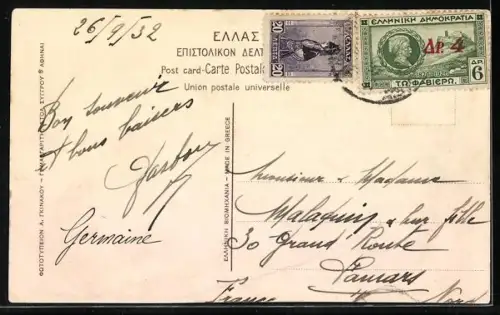 26/9/32
ΕΛΛΑΣ
ΕΠΙΣΤΟΛΙΚΟΝ ΔΕΛΤ
Post card-Carte Postale
Union postale universelle
20 20
ΕΛΛΗΝΙΚΗ ΔΗΜΟΚΡΑΤΙΑ
ΔΡ. 4
ΔΡ. 6
ΤΩ ΦΑΒΙΕΡΩ
Bon souvenir
et bons baisers
Germaine
ΕΛΛΗΝΙΚΗ ΒΙΟΜΗΧΑΝΙΑ - MADE IN GREECE
Monsieur & Madame
& leur fille
30 Grand Route
Nord
France